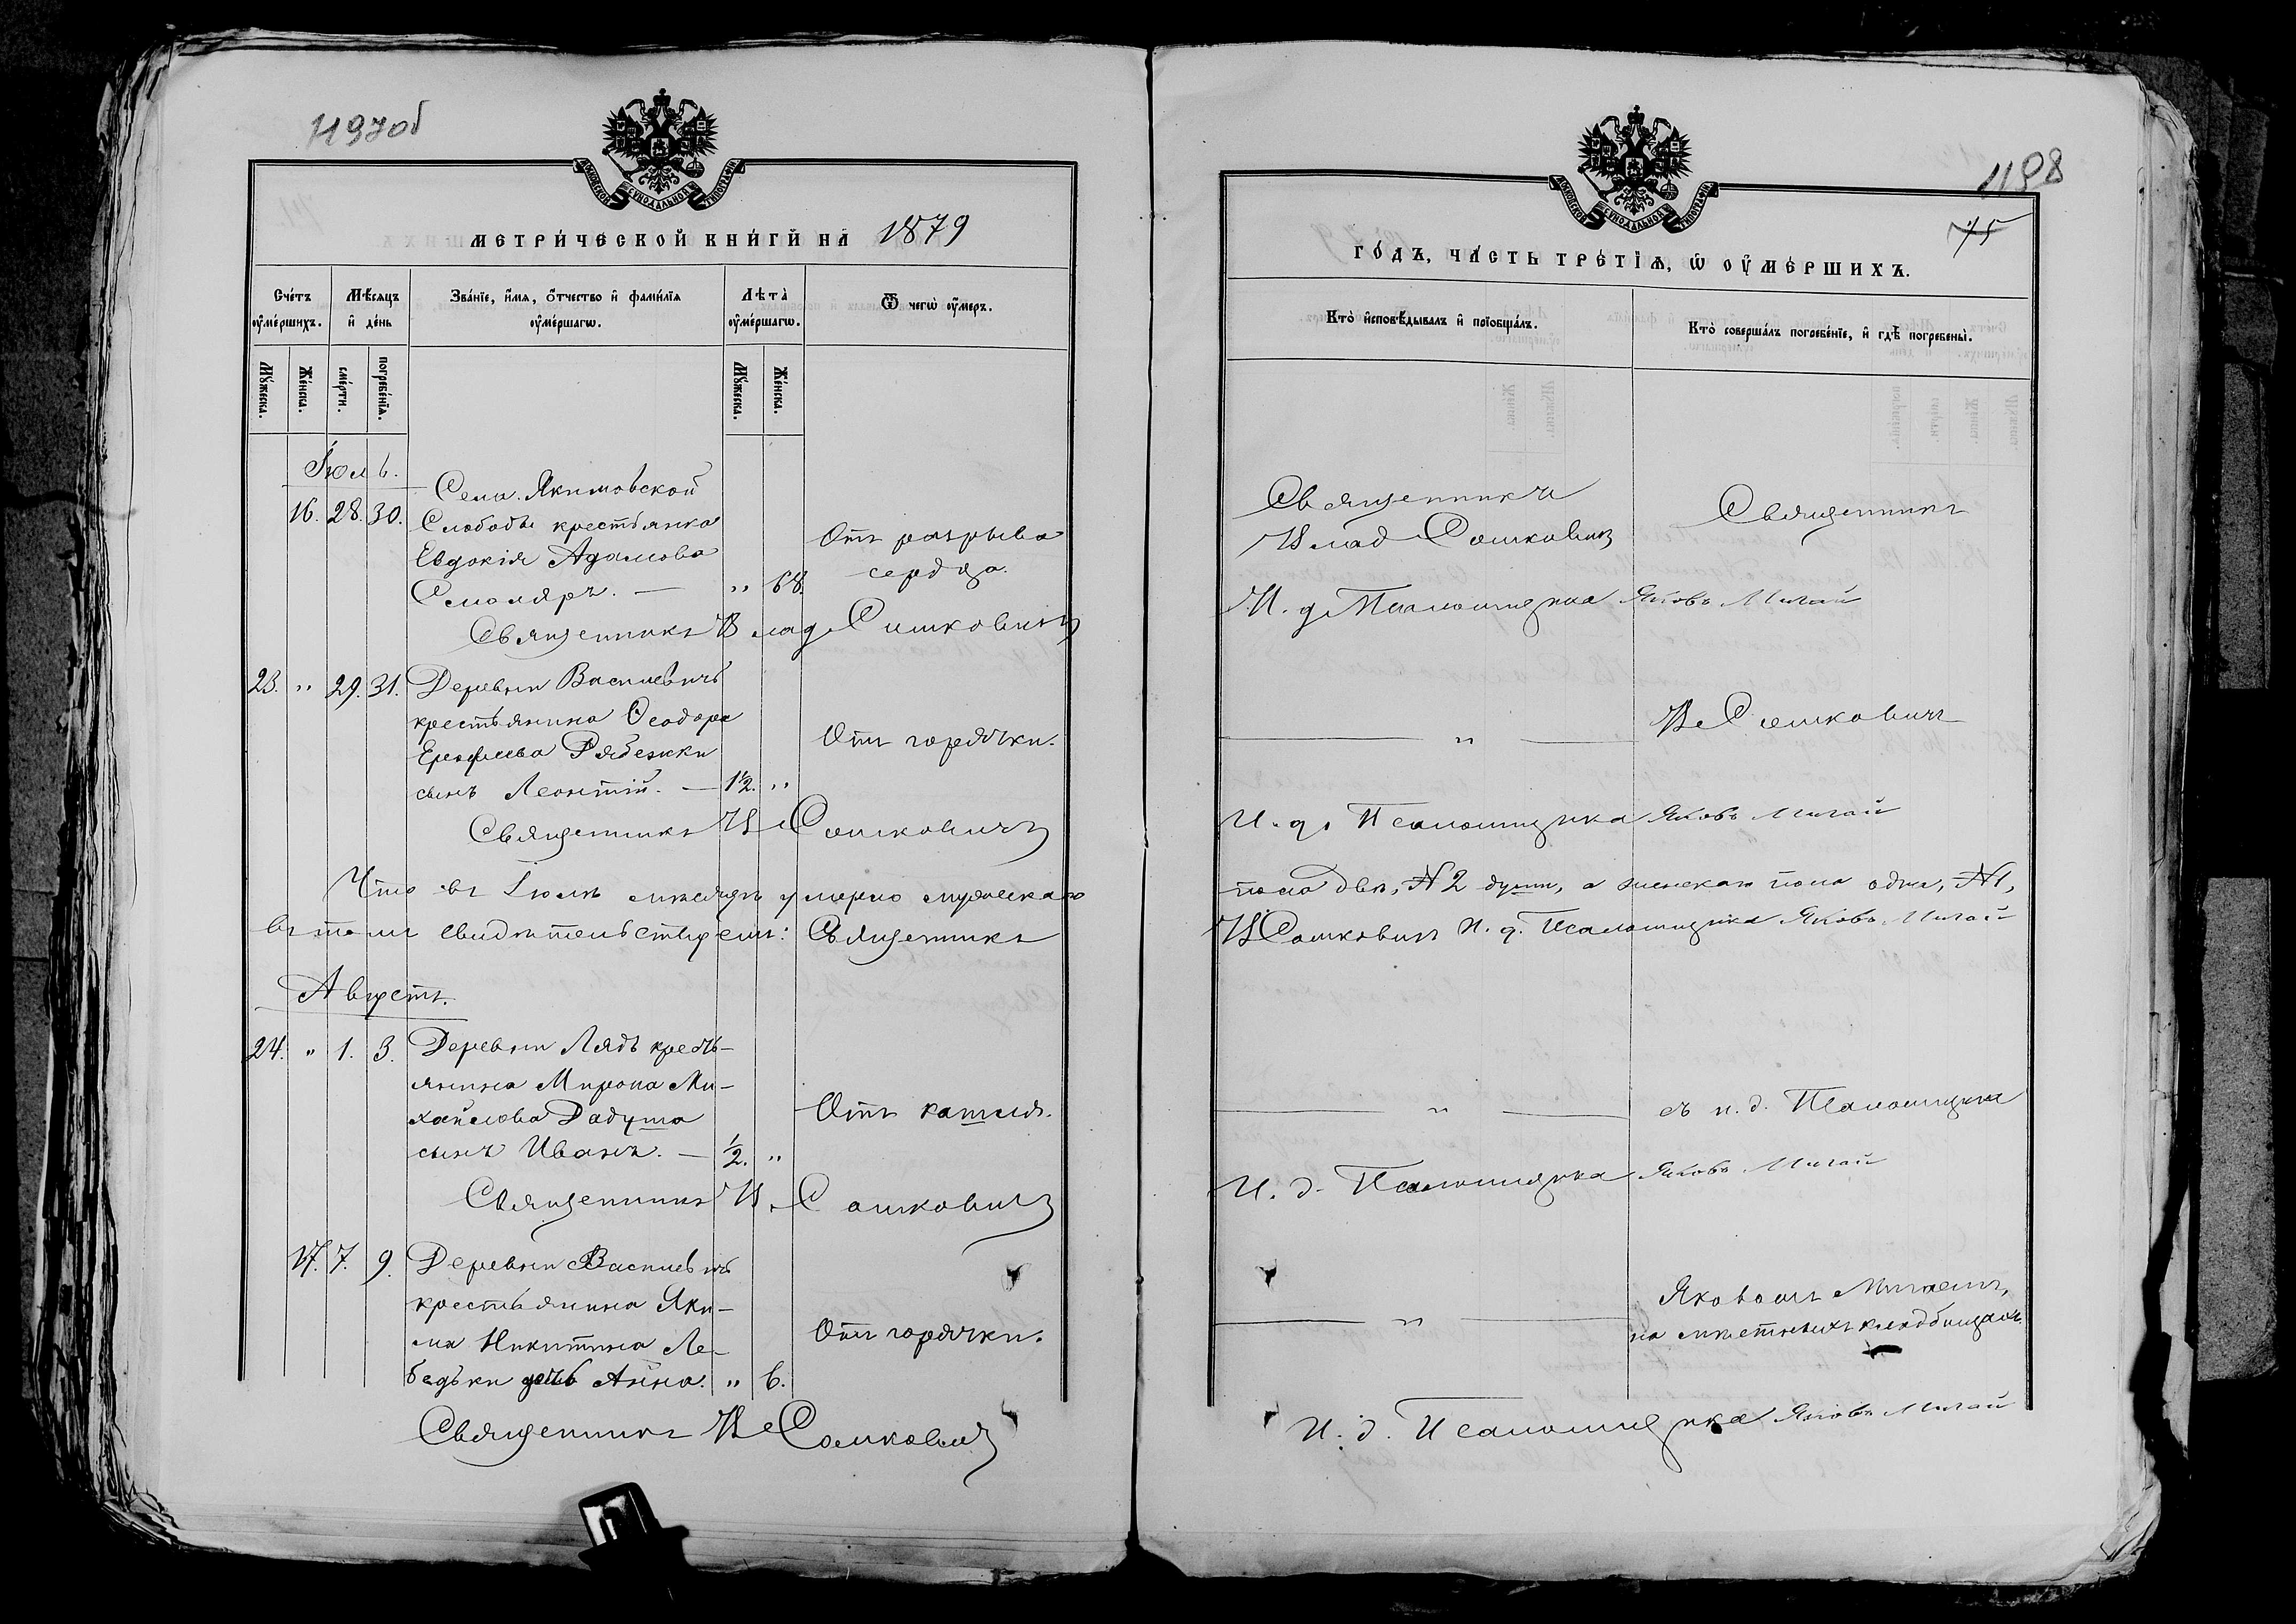 1197об
МОСКОВСКОЙ СѴНОДАЛЬНОЙ ТИПОГРАФІИ
МЕТРИ́ЧЕСКОЙ КНИ́ГИ НА 1879
Сче́тъ ᲂу҆ме́ршихъ.
Мѣ́сяцъ и҆ де́нь
Зва́нїе, и҆́мѧ, ѻ҆́тчество и҆ фами́лїѧ ᲂу҆ме́ршагѡ.
Лѣта̀ ᲂу҆ме́ршагѡ.
Ѿ чегѡ̀ ᲂу҆́меръ.
Мꙋ́жеска.
Же́нска.
сме́рти.
погребе́нїѧ.
Мꙋ́жеска.
Же́нска.
Іюль.
16. 28. 30. Села Якимовской
Слободы крестьянка
Евдокія Адамова
Смоляръ. — " 68.
Отъ разрыва
сердца.
Священникъ Влад Сошковичъ
23. " 29. 31. Деревни Василевичъ
крестьянина Ѳеодора
Ерофеева Рябенки
сынъ Леонтій. — 1½. "
Отъ горячки.
Священникъ В Сошковичъ
Что въ Іюлѣ мѣсяцѣ умерло мужескаго
въ томъ свидѣтельствуемъ: Священникъ
Августъ.
24. " 1. 3. Деревни Лядъ кресть-
янина Мирона Ми-
хайлова Радуша
сынъ Иванъ. — ½. "
Отъ кашля.
Священникъ В. Сошковичъ
17. 7. 9. Деревни Василевичъ
крестьянина Яки-
ма Никитина Ле-
бедьки дочь Анна. " 6.
Отъ горячки.
Священникъ В Сошковичъ
1198
75
МОСКОВСКОЙ СѴНОДАЛЬНОЙ ТИПОГРАФІИ
ГО́ДЪ, ЧА́СТЬ ТРЕ́ТІѦ, Ѡ҆ ОУ҆МЕ́РШИХЪ.
Кто̀ и҆сповѣ́дывалъ и҆ прїобща́лъ.
Кто̀ соверша́лъ погребе́нїе, и҆ гдѣ̀ погребены̀.
Священникъ
Влад Сошковичъ
Священникъ
И. д Псаломщика Яковъ Мигай
"
В Сошковичъ
И. д. Псаломщика Яковъ Мигай
пола двѣ, № 2 души, а женскаго пола одна, № 1,
В Сошковичъ И. д. Псаломщика Яковъ Мигай
"
съ и. д. Псаломщика
И. д. Псаломщика Яковъ Мигай
"
Яковомъ Мигаемъ,
на мѣстныхъ кладбищахъ.
И. д. Псаломщика Яковъ Мигай